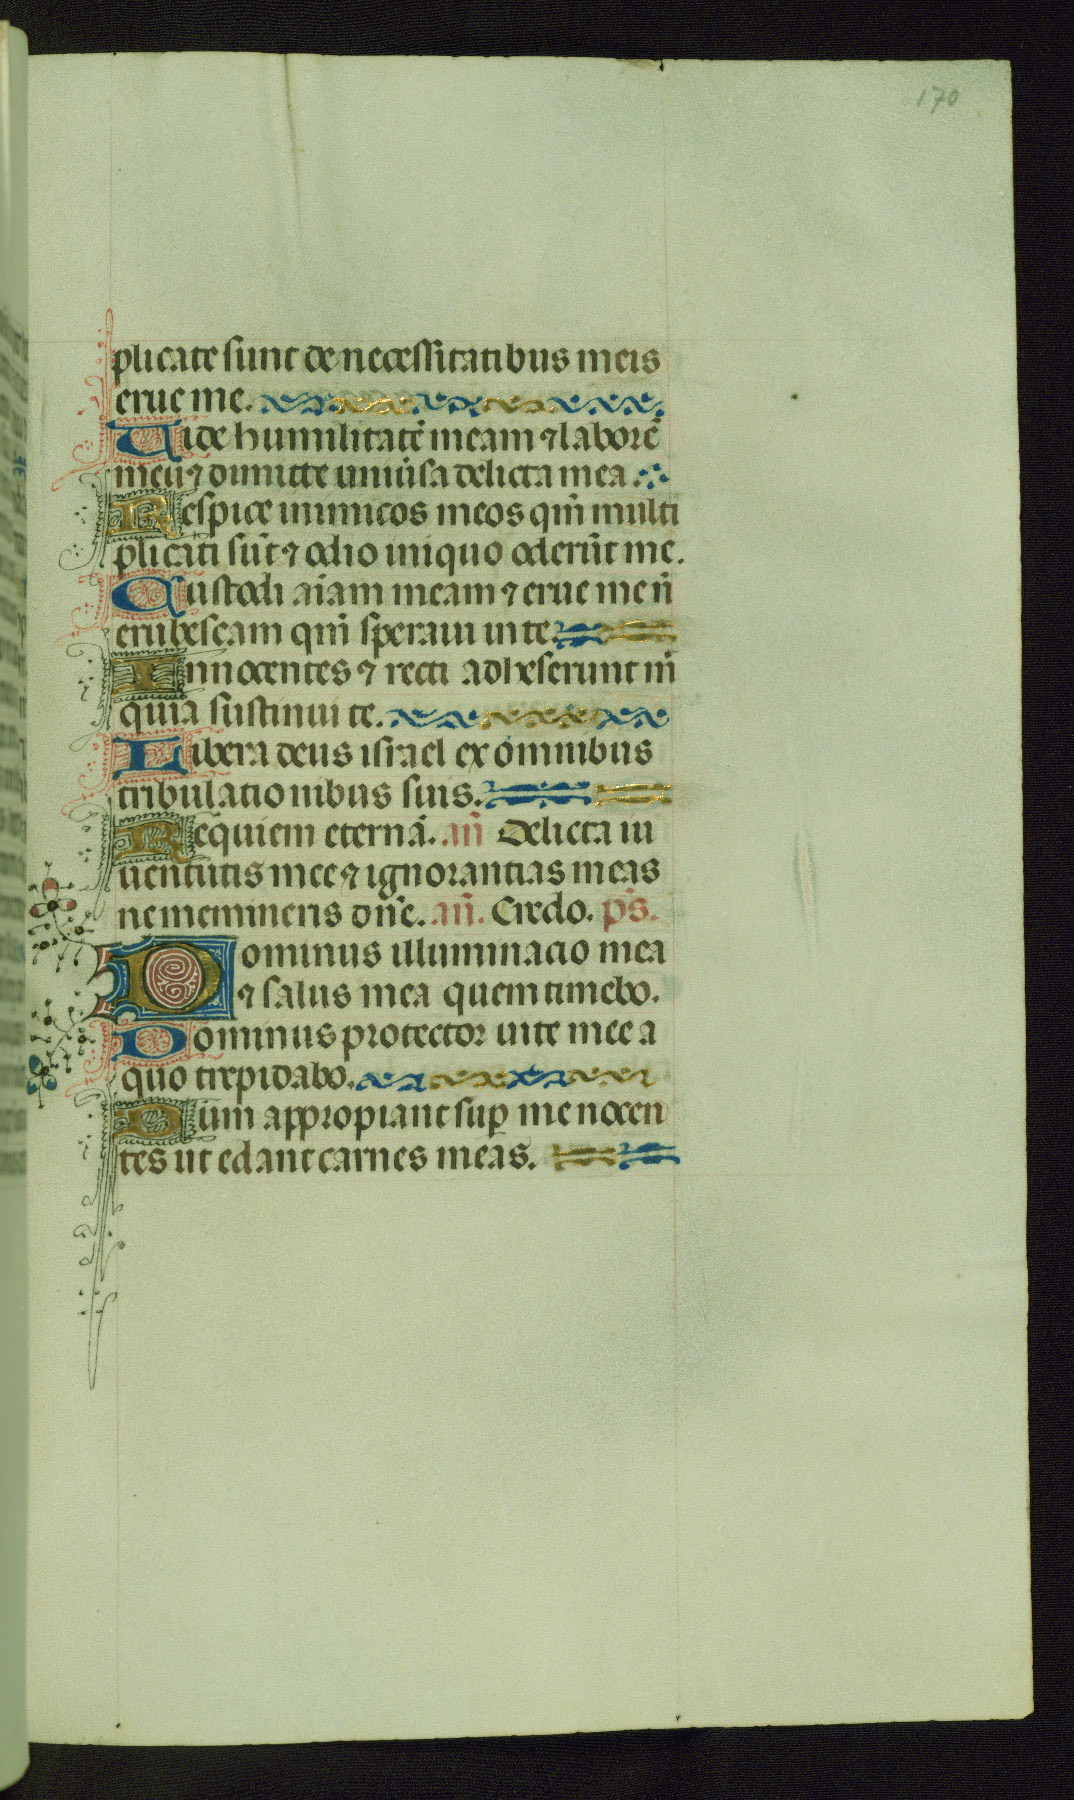 170
plicate sunt de necessitatibus meis
erue me.
Uide humilitatē meam ⁊ laborē
meū ⁊ dimitte uniũsa delicta mea.
Respice inimicos meos qm̄ multi
plicati sūt ⁊ odio iniquo oderūt me.
Custodi aīam meam ⁊ erue me n̄
erubescam qm̄ speraui in te.
Innocentes ⁊ recti adheserunt m̄
quia sustinui te.
Libera deus israel ex omnibus
tribulationibus suis.
Requiem eternā. an̄ Delicta iu
uentutis mee ⁊ ignorantias meas
ne memineris dn̄e. an̄. Credo. p̄s.
Dominus illuminacio mea
⁊ salus mea quem timebo.
Dominus protector uite mee a
quo trepidabo.
Dum appropiant suꝑ me nocen
tes ut edant carnes meas.